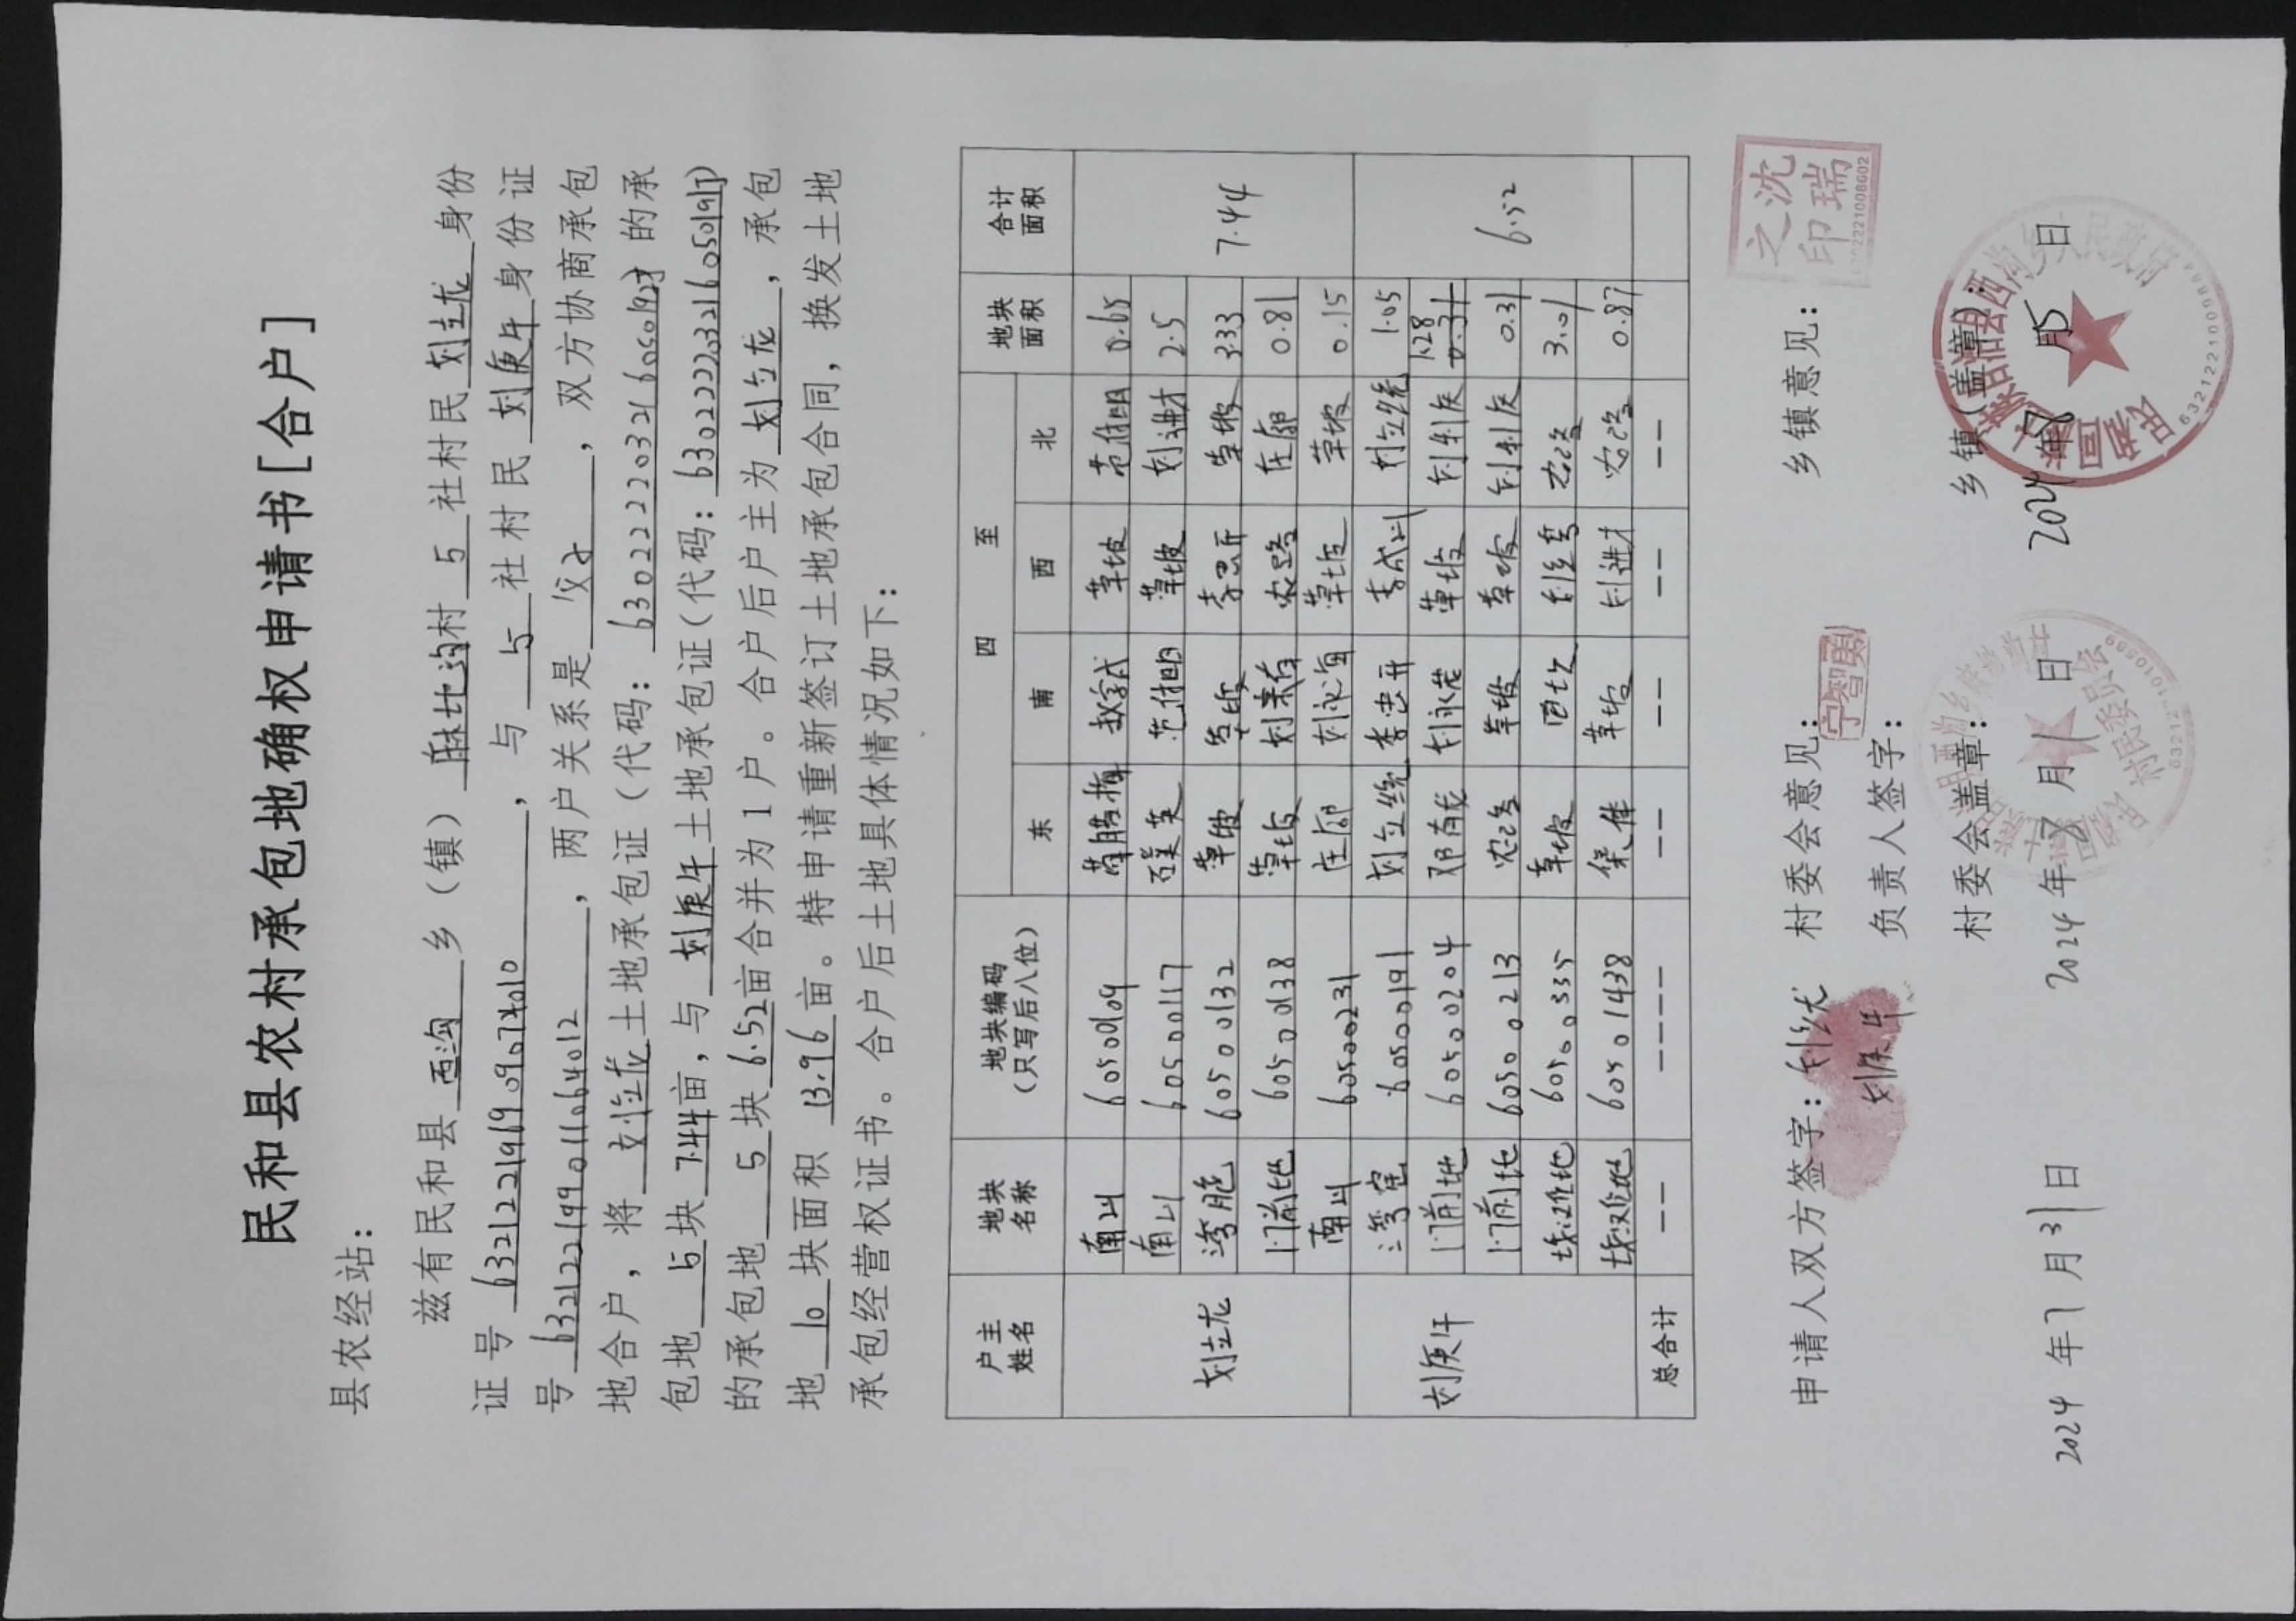 民和县农村承包地确权申请书[合户]
县农经站：
兹有民和县 西沟 乡（镇） 麻地沟村 5 社村民 刘立龙 身份
证号 632122196909074010 ，与 5 社村民 刘庚午 身份证
号 632122199011064012 ，两户关系是 父子 ，双方协商承包
地合户，将 刘立龙 土地承包证（代码： 630222203216050192J 的承
包地 5 块 7.44 亩，与 刘庚午 土地承包证（代码： 630222203216050191J）
的承包地 5 块 6.52 亩合并为1户。合户后户主为 刘立龙 ，承包
地 10 块面积 13.96 亩。特申请重新签订土地承包合同，换发土地
承包经营权证书。合户后土地具体情况如下：
户主姓名 地块名称 地块编码（只写后八位） 四至 地块面积 合计面积
东 南 西 北
刘立龙 7.44
南山 60500109 草坡 范付明 0.65
南山 60500117 范付明 草坡 刘进才 2.5
湾脑 60500132 草坡 草坡 李忠开 草坡 3.33
门前地 60500138 草坡 刘来存 农路 庄廓 0.81
南山 60500231 庄廓 刘永海 草坡 草坡 0.15
刘庚午 6.52
湾窑 60500191 刘立统 李忠开 李成山 刘立统 1.05
门前地 60500204 邓有龙 刘永龙 草坡 刘利庆 1.28 0.31
门前地 60500213 农路 草坡 草坡 刘利庆 0.31
60500335 草坡 农路 3.01
60501438 集体 草坡 刘进才 农路 0.87
总合计 —— ———— —— —— —— ——
申请人双方签字：刘立龙 村委会意见： 乡镇意见：
沈瑞之印
6302221008602
宁智勇
刘庚午
负责人签字：
村委会盖章： 乡镇（盖章）：
2024 年 7 月 31 日 2024 年 8 月 1 日 2024 年 8 月 15 日
村民委员会
民和回族土族自治县西沟乡人民政府